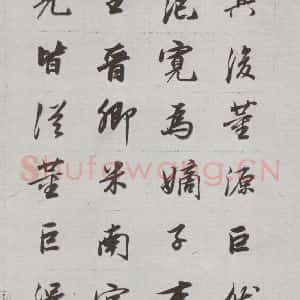 其後董源巨然
范寬為嫡子李
王晉卿米南宮
兒皆從董巨得
Shufawang.CN